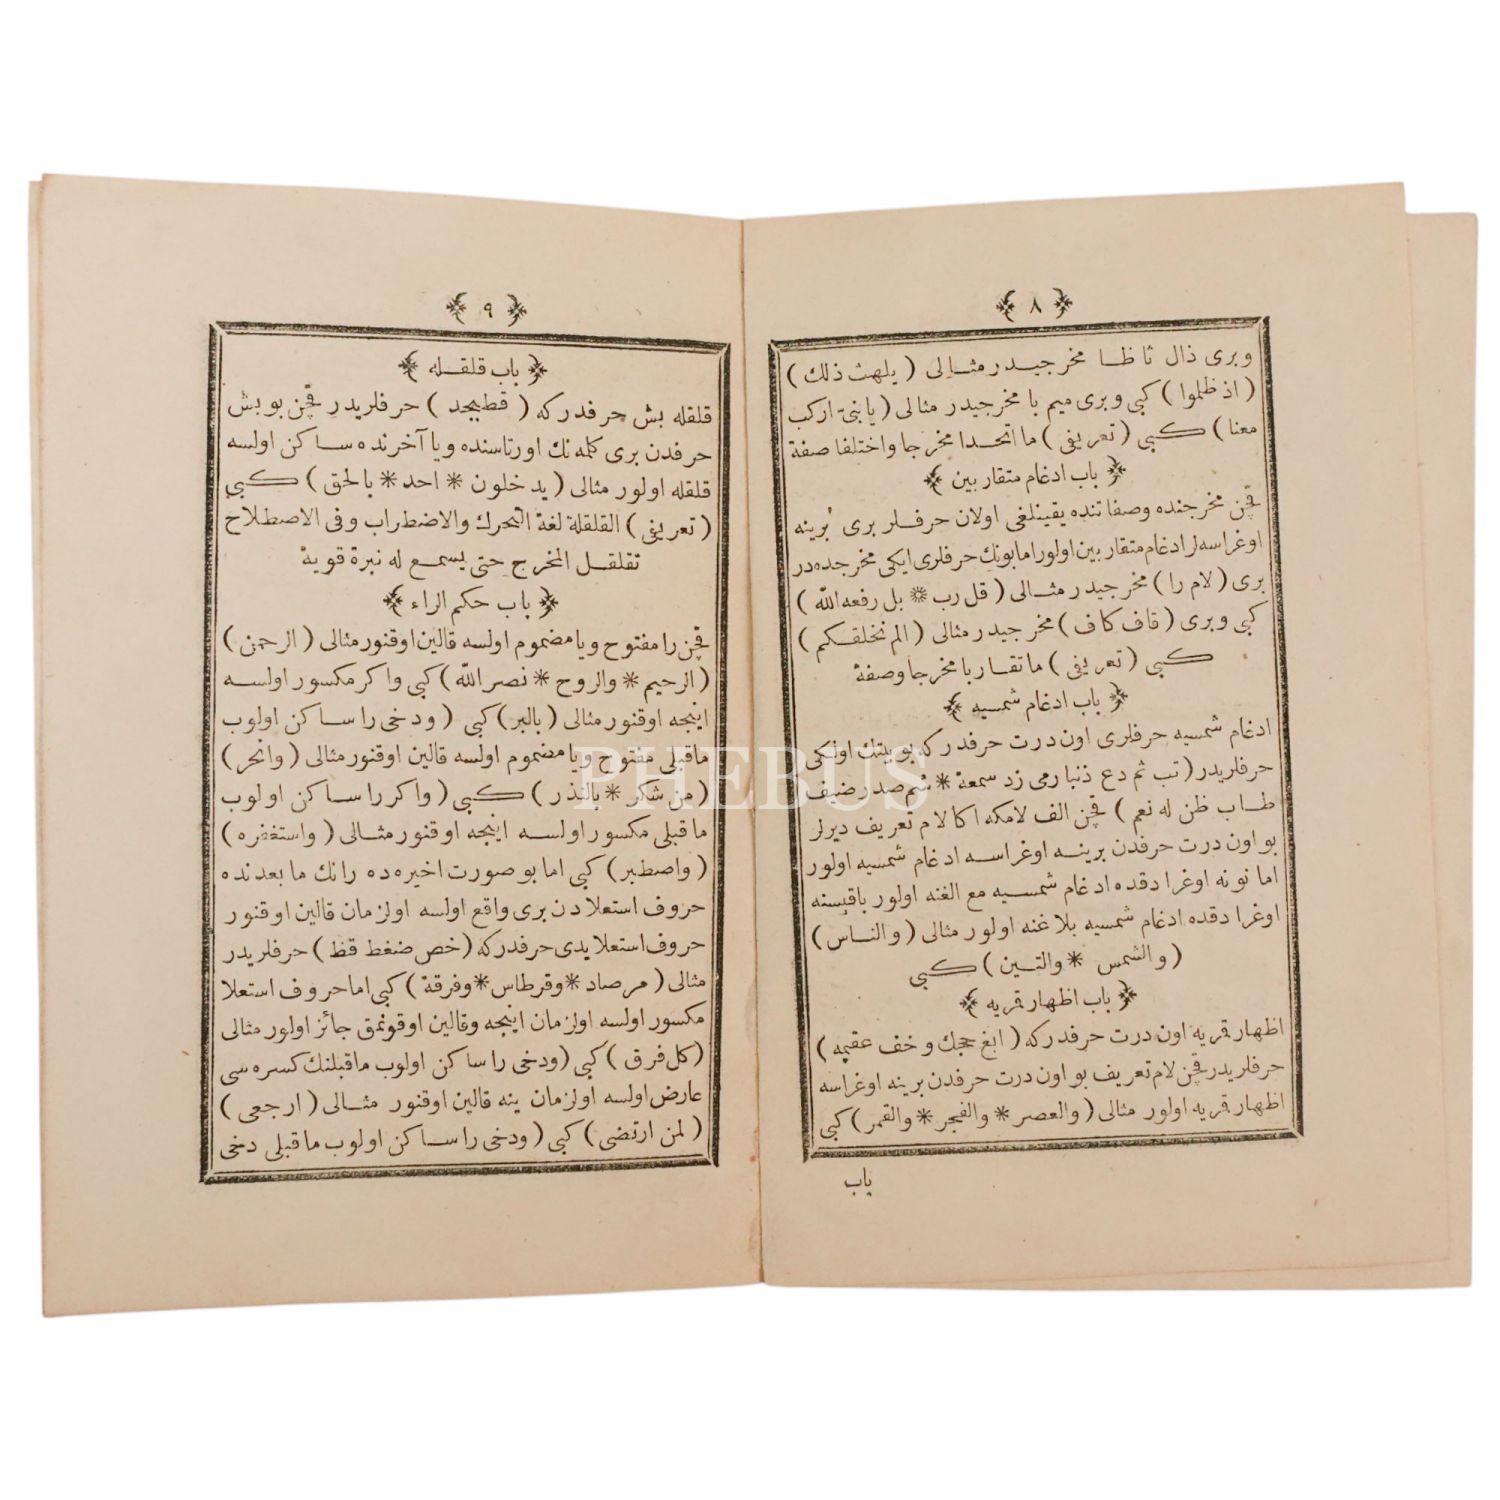 ٨
وبرى ذال ثا ظا مخرجيدر مثالى ( يلهث ذلك )
( اذ ظلموا ) كبى وبرى ميم با مخرجيدر مثالى ( يا بنىّ اركب
معنا ) كبى ( تعريفى ) ما اتحدا مخرجا واختلفا صفة
باب ادغام متقاربين
قچن مخرجنده وصفاتنده يقينلغى اولان حرفلر برى برينه
اوغراسه لر ادغام متقاربين اولور اما بونك حرفلرى ايكى مخرجده در
برى ( لام را ) مخرجيدر مثالى ( قل رب * بل رفعه الله )
كبى وبرى ( قاف كاف ) مخرجيدر مثالى ( الم نخلقكم )
كبى ( تعريفى ) ما تقاربا مخرجا وصفة
باب ادغام شمسيه
ادغام شمسيه حرفلرى اون درت حرفدر كه بو بيتك اولكى
حرفلريدر ( تب ثم دع ذنبا رمى زد سمعة * شم صدر ضيف
طاب ظن له نعم ) قچن الف لامكه اكا لام تعريف ديرلر
بو اون درت حرفدن برينه اوغراسه ادغام شمسيه اولور
اما نونه اوغرادقده ادغام شمسيه مع الغنه اولور باقيسنه
اوغرادقده ادغام شمسيه بلا غنه اولور مثالى ( والناس )
( والشمس * والتين ) كبى
باب اظهار قمريه
اظهار قمريه اون درت حرفدر كه ( ابغ حجك وخف عقيمه )
حرفلريدر قچن لام تعريف بو اون درت حرفدن برينه اوغراسه
اظهار قمريه اولور مثالى ( والعصر * والفجر * والقمر ) كبى
باب
٩
باب قلقله
قلقله بش حرفدر كه ( قطبجد ) حرفلريدر قچن بو بش
حرفدن برى كلمه نك اورتاسنده ويا آخرنده ساكن اولسه
قلقله اولور مثالى ( يدخلون * احد * بالحق ) كبى
( تعريفى ) القلقلة لغة التحرك والاضطراب وفى الاصطلاح
تقلقل المخرج حتى يسمع له نبرة قوية
باب حكم الراء
قچن را مفتوح ويا مضموم اولسه قالين اوقنور مثالى ( الرحمن )
( الرحيم * والروح * نصر الله ) كبى واكر مكسور اولسه
اينجه اوقنور مثالى ( بالبر ) كبى ( ودخى را ساكن اولوب
ماقبلى مفتوح ويا مضموم اولسه قالين اوقنور مثالى ( وانحر )
( من شكر * بالنذر ) كبى ( واكر را ساكن اولوب
ماقبلى مكسور اولسه اينجه اوقنور مثالى ( واستغفره )
( واصطبر ) كبى اما بو صورت اخيره ده رانك ما بعدنده
حروف استعلادن برى واقع اولسه اول زمان قالين اوقنور
حروف استعلا يدى حرفدر كه ( خص ضغط قظ ) حرفلريدر
مثالى ( مرصاد * وقرطاس * وفرقة ) كبى اما حروف استعلا
مكسور اولسه اول زمان اينجه وقالين اوقونمق جائز اولور مثالى
( كل فرق ) كبى ( ودخى را ساكن اولوب ماقبلنك كسره سى
عارض اولسه اول زمان ينه قالين اوقنور مثالى ( ارجعى )
( لمن ارتضى ) كبى ( ودخى را ساكن اولوب ماقبلى دخى
PHEBUS